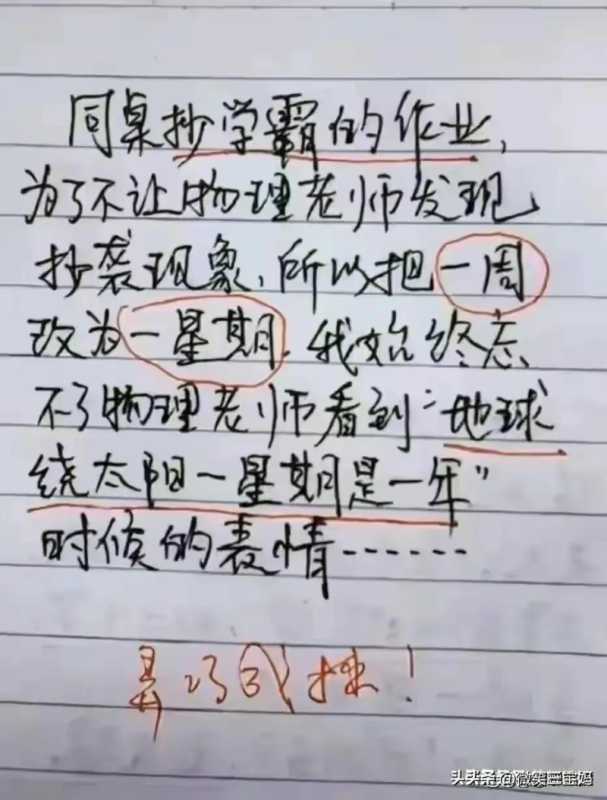 同桌抄学霸的作业，
为了不让物理老师发现
抄袭现象，所以把一周
改为一星期，我始终忘
不了物理老师看到“地球
绕太阳一星期是一年”
时候的表情……
弄巧成拙！